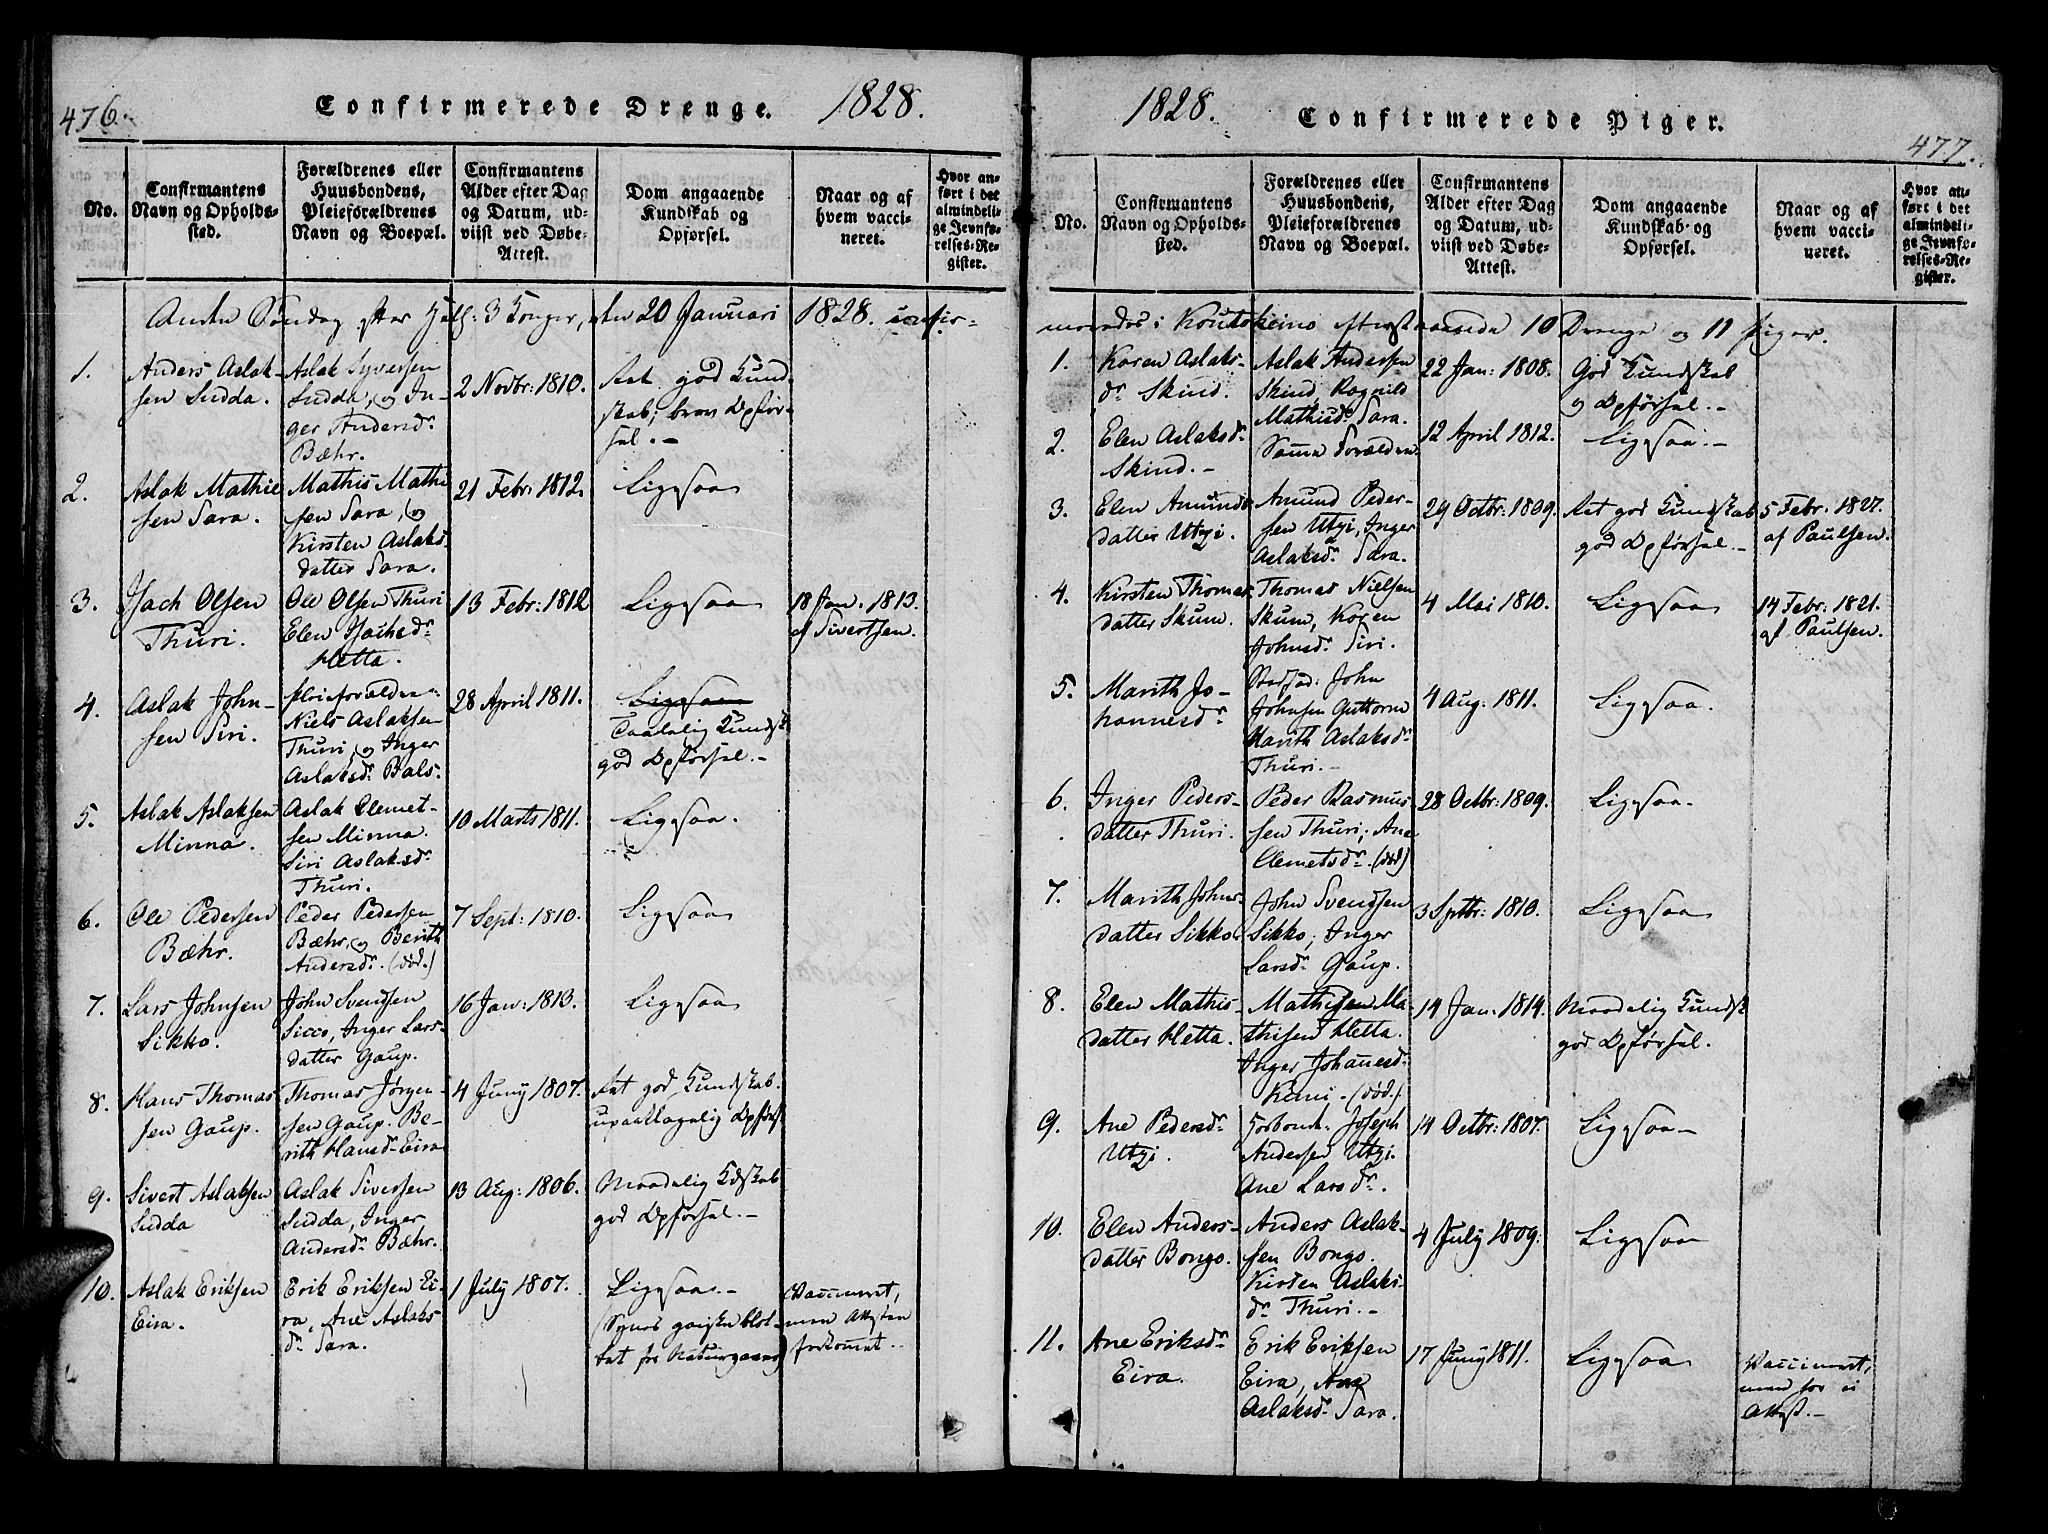 476.
Confirmerede Drenge. 1828.
No.
Confirmantens
Navn og Opholds-
sted.
Forældrenes eller
Huusbondens,
Pleieforældrenes
Navn og Boepæl.
Confirmantens
Alder efter Dag
og Datum, ud-
viist ved Døbe-
Attest.
Dom angaaende
Kundskab og
Opførsel.
Naar og af
hvem vacci-
neret.
Hvor an-
ført i det
almindeli-
ge Jevnfø-
relses-Re-
gister.
Anden Søndag efter Hell: 3 Konger, den 20 Januari 1828. confir-
1.
Anders Aslak-
sen Sudda.
Aslak Syversen
Sudda, og In-
ger Andersdr
Bæhr.
2 Novbr: 1810.
Ret god Kund-
skab; brav Opfør-
sel.-
2.
Aslak Mathi-
sen Sara.
Mathis Mathi
sen Sara, og
Kirsten Aslaks-
datter Sara.
21 Febr: 1812.
Ligesaa
3.
Isach Olsen
Thuri.
Ole Olsen Thuri
Elen Isachsdr
Hetta.
13 Febr: 1812
Ligesaa
18 Jan. 1813.
af Sivertsen.
4.
Aslak John-
sen Siri.
Pleieforældrene
Niels Aslaksen
Thuri, og Inger
Aslaksdr Bals.
28 April 1811.
Ligesaa
Taalelig Kundsk
god Opførsel.-
5.
Aslak Aslaksen
Minna.
Aslak Clemet-
sen Minna.
Siri Aslaksdr
Thuri.
10 Marts 1811.
Ligesaa.
6.
Ole Pedersen
Bæhr.
Peder Pedersen
Bæhr, og Berith
Andersdr. (død.)
7 Sept: 1810.
Ligesaa
7.
Lars Johnsen
Sikko.
John Svendsen
Sicco, Inger Lars-
datter Gaup.
16 Jan: 1813.
Ligesaa
8.
Hans Thomas
sen Gaup.
Thomas Jørgen-
sen Gaup. Be-
rith Hansd. Eira
4 Juny 1807.
Ret god Kundskab.
upaaklagelig Opførs
9.
Sivert Aslaksen
Sudda
Aslak Siversen
Sudda, Inger
Andersdr Bæhr.
13 Aug: 1806.
Maadelig Kdskab
god Opførsel.-
10.
Aslak Eriksen
Eira.
Erik Eriksen Ei-
ra, Ane Aslaks
dr Sara.
1 July 1807.
Ligesaa.-
(Synes ganske blot-
tet for Naturgaver)
Vaccineret,
men Attesten
forkommet.
1828.
Confirmerede Piger.
477.
No.
Confirmantens
Navn og Opholds-
sted.
Forældrenes eller
Huusbondens,
Pleieforældrenes
Navn og Boepæl.
Confirmantens
Alder efter Dag
og Datum, ud-
viist ved Døbe-
Attest.
Dom angaaende
Kundskab og
Opførsel.
Naar og af
hvem vacci-
neret.
Hvor an-
ført i det
almindeli-
ge Jevnfø-
relses-Re-
gister.
meredes i Koutokeino efterstaaende 10 Drenge og 11 Piger.
1.
Karen Aslaks-
dr Skind.
Aslak Andersen
Skind, Ragnild
Mathisdr Sara.
22 Jan: 1808.
God Kundskab
og Opførsel.-
2.
Elen Aslaksdr
Skind.-
Samme Forældre
12 April 1812.
Ligesaa.-
3.
Elen Amunds
datter Utzi.
Amund Peder-
sen Utzi, Inger
Aslaksdr Sara.
29 Octbr: 1809.
Ret god Kundskab
god Opførsel.-
5 Febr. 1827.
af Paulsen.
4.
Kirsten Thomas
datter Skum.
Thomas Nielsen
Skum, Karen
Johnsdr Siri.
4 Mai 1810.
Ligesaa
14 Febr: 1821.
af Paulsen.
5.
Marith Jo-
hannesdr
Stedfad: John
Johnsen Guttorm
Marith Aslaksdr
Thuri.-
4 Aug: 1811.
Ligesaa.
6.
Inger Peders-
datter Thuri.
Peder Rasmus-
sen Thuri; Ane
Clemetsdr. (død)
28 Octbr: 1809.
Ligesaa.
7.
Marith Johns-
datter Sikko.
John Svendsen
Sikko, Inger
Larsdr Gaup.
3 Septbr: 1810.
Ligesaa
8.
Elen Mathis-
datter Hetta.
Mathisen Ma-
thisen Hetta.
Inger Johanesdr
Kemi. (død.)
14 Jan: 1814.
Maadelig Kundsk
god Opførsel.
9.
Ane Pedersdr
Utzi.
Joseph
Andersen Utzi.
Ane Larsdr.
14 Octbr: 1807.
Ligesaa
10.
Elen Anders-
datter Bongo.
Anders Aslak-
sen Bongo.
Kirsten Aslaks-
dr Thuri.-
4 July 1809.
Ligesaa
11.
Ane Eriksdr
Eira.
Erik Eriksen
Eira, Ane
Aslaksdr Sara.
17 Juny 1811.
Ligesaa
Vaccineret,
men for ei
Attest.-